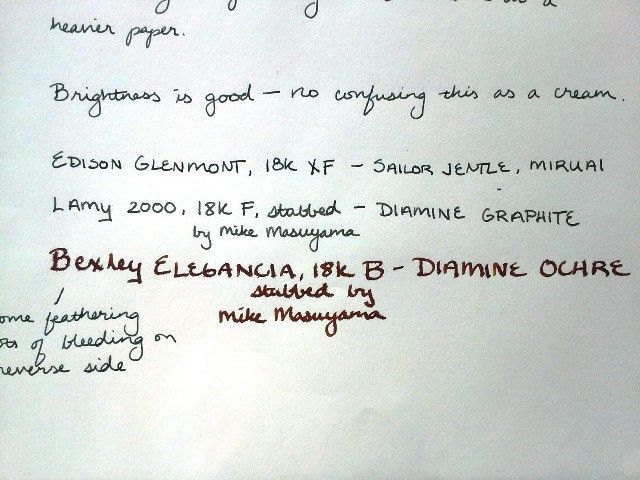 heavier paper.
Brightness is good — no confusing this as a cream.
EDISON GLENMONT, 18K XF — SAILOR JENTLE, MIRUAI
LAMY 2000, 18K F, stubbed — DIAMINE GRAPHITE
by Mike Masuyama
Bexley ELEGANCIA, 18K B — DIAMINE OCHRE
stubbed by
Mike Masuyama
ome feathering
of bleeding on
reverse side